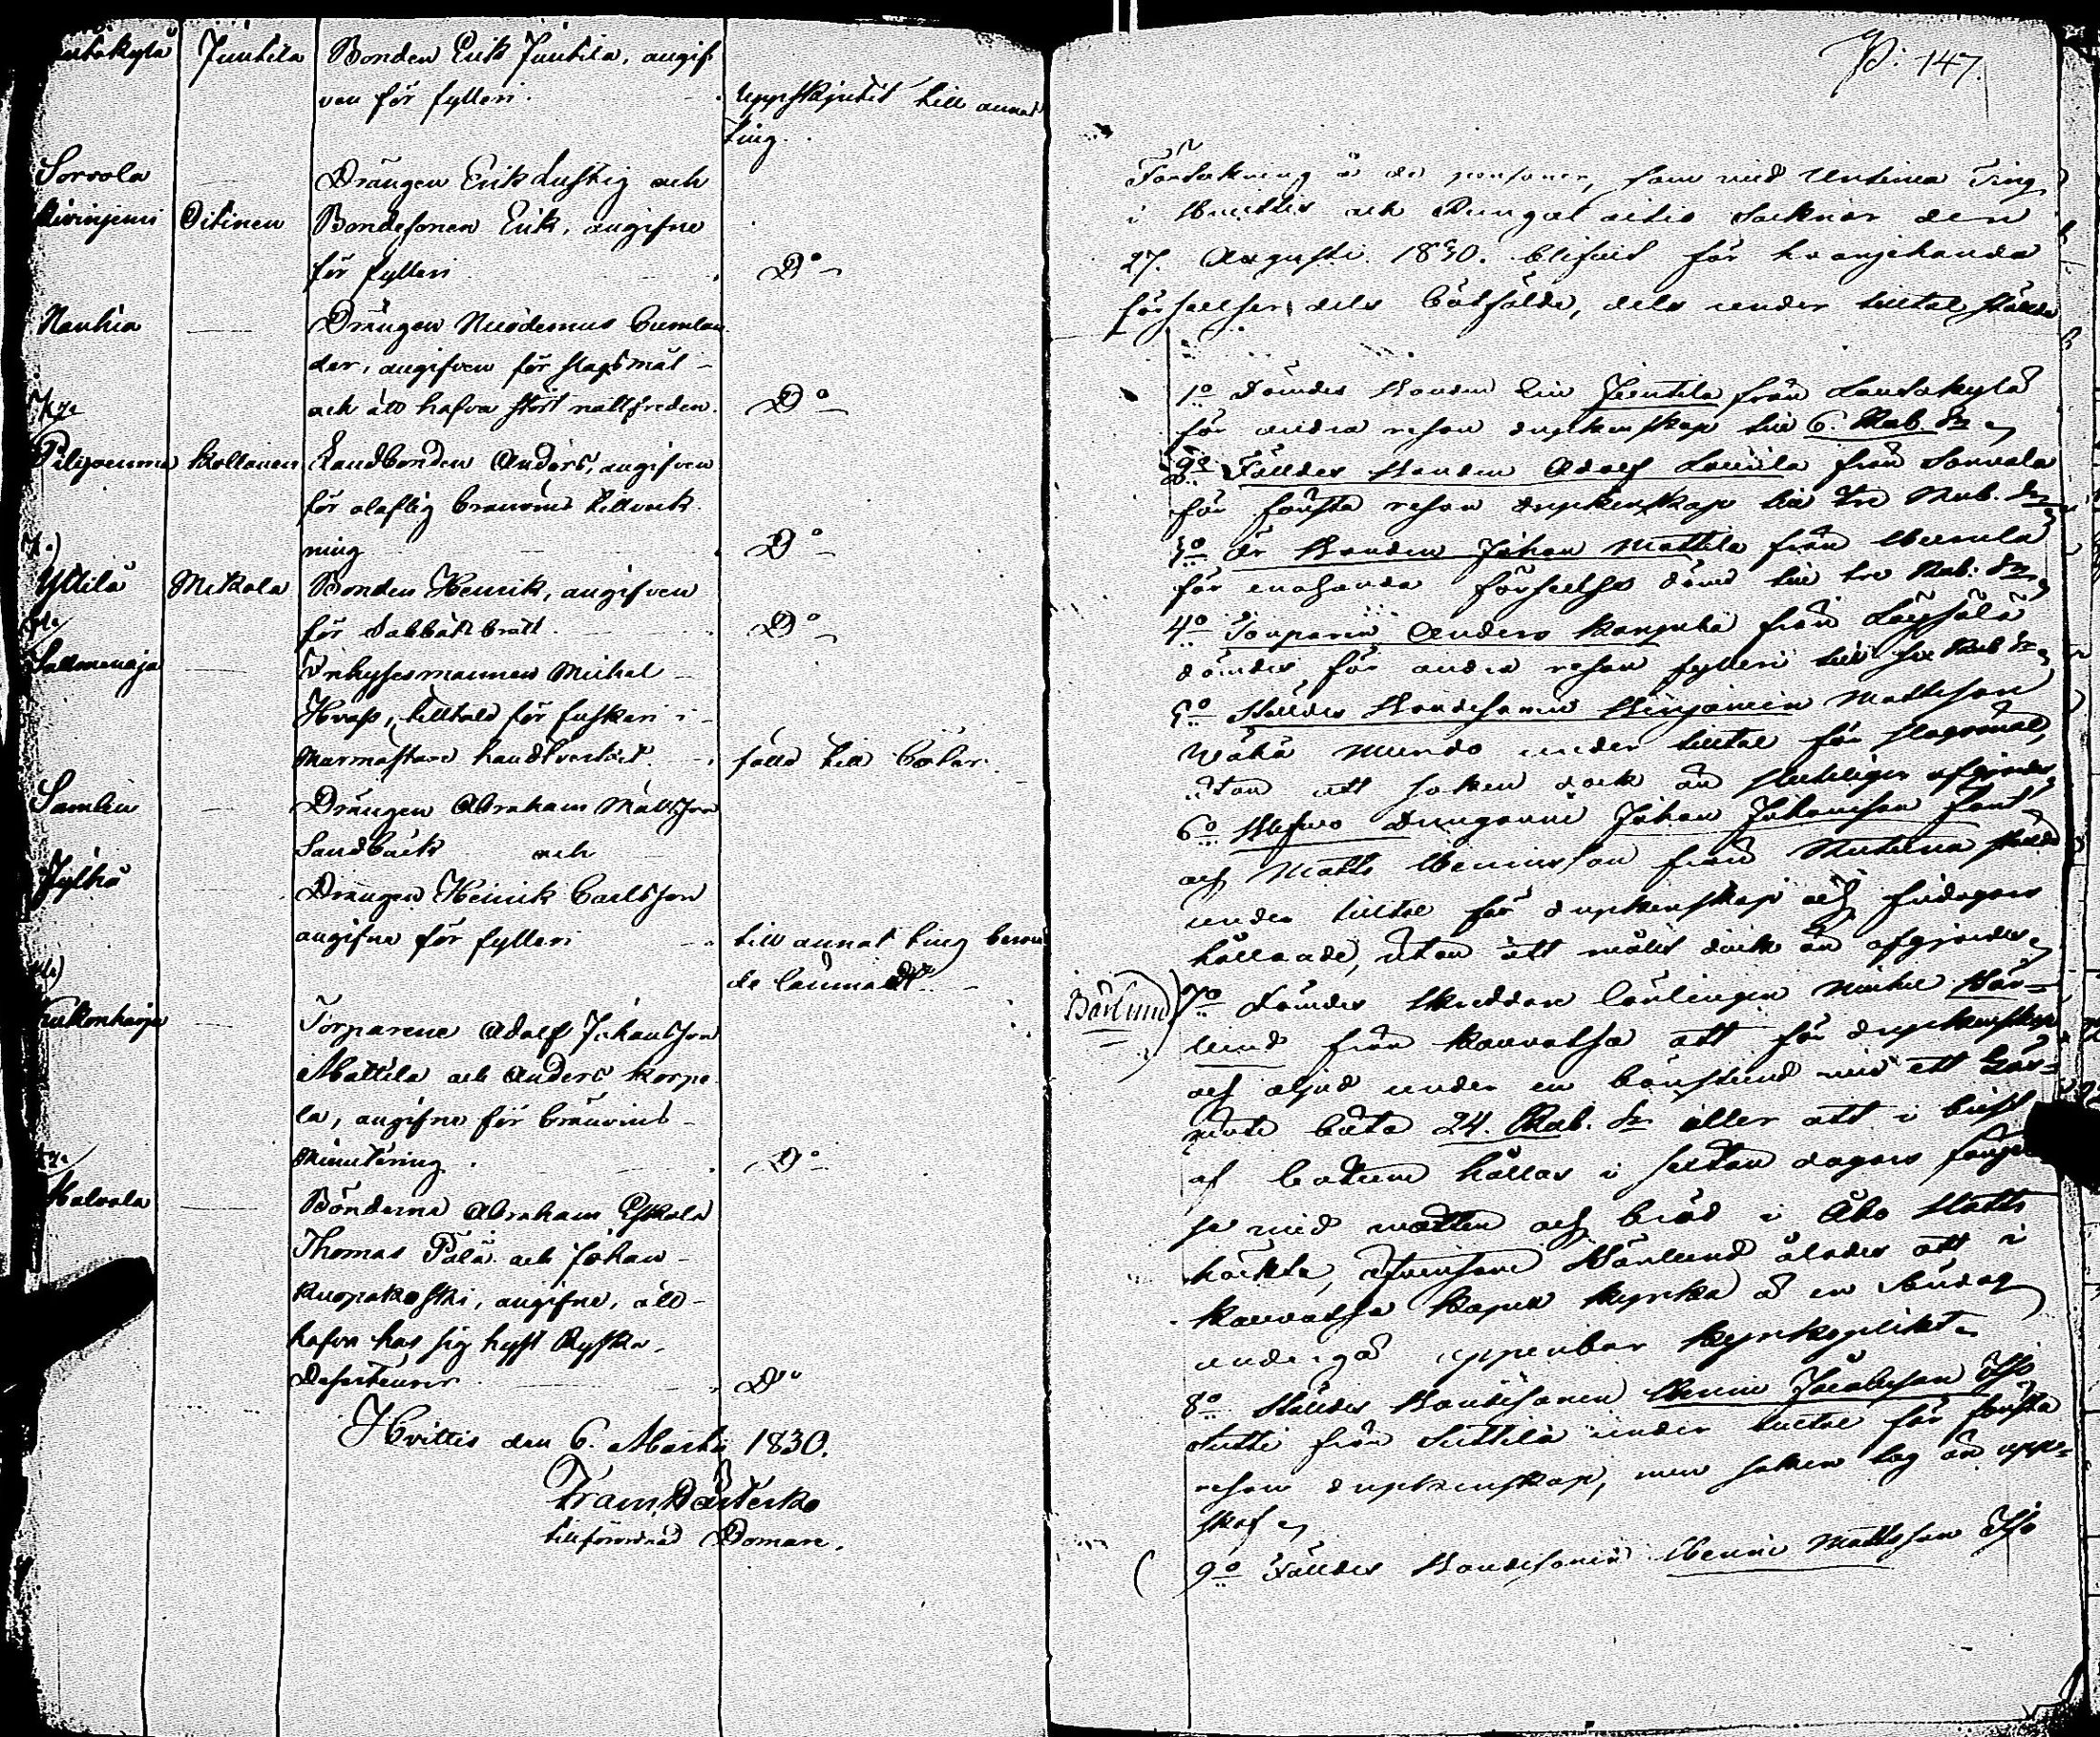 Juutila Bonden Erik Juutila, angif
ven för fylleri. Uppskjutit till annat
Ting.
Sorvola Drängen Erik Lustig och
Kivinjemi Oitinen Bondesonen Erik, angifne
för fylleri D:o
Nanhia Drängen Nicodemus Cumlan
der, angifven för slagsmål
och att hafva stört nattfreden. D:o
Kollanen Landbonden Anders, angifven
för olaflig bränvins tillverk
ning D:o
Yttilä Mikola Bonden Henrik, angifven
för Sabbats brått. D:o
Sallmenoja Inhysesmannen Michel
Hvass, tilltald för fuskeri i
Murmästare handtverket. fälld till böter.
Samlu Drängen Abraham Mattsson
Sandbäck och
Jylhä Drängen Heinrik Carlsson
angifne för fylleri till annat ting beroen
de lämnadt.
Torparene Adolf Johansson
Mattila och Anders Korpe
la, angifne för bränvins
Minutering. D:o
Bönderne Abraham Eskola
Thomas Pälä och Johan
Kuopakoski, angifne, att
hafva hos sig hyst Ryska
Deserteurer D:o
Hvittis den 6. Martii 1830.
Frans
tillförordnad Domare.
P: 147.
Förtekning å de personer, som vid Urtima Ting
i Huittis och Pungalaitio Soknar den
27. Augusti 1830. blifvit för hvarjehanda
förseelser dels bötfälde, dels under tiltal stälde
1:o Dömdes Bonden Eric Juntila från Lautakylä
för andra resan dryckenskap till 6. Rub. Sr
2:o Fälldes Bonden Adolf Laurila från Sorvola
för första resan dryckenskap till tre Rub. Sr
3:o är Bonden Johan Mattila från
för enahanda förseelse dömd till tre Rub. Sr
4:o Torparen Anders från
dömdes för andra resan fylleri till sex Rub Sr
5:o Stäldes Bondesonen Benjamin Mattsson
Wähä Mundo under tiltal för slagsmål,
utan att saken dock än sluteligen afgjordes.
6:o Blefvo Drängarne Johan Johansson
och Matts Henricsson från stälde
under tilltal för dryckenskap och
hållande, utan att målet dock än afgjordes
Bärlund) 7:o Dömdes Skreddare lärlingen Michel Bär=
lund från Kauvatsa att för dryckenskap
och oljud under en bönstund med ett
böta 24. Rub. Sr eller att i brist
af botum hållas i sexton dagars fängel
se med vatten och bröd i Åbo Slotts
häkte, äfvensom Bärlund ålades att i
Kauvatsa Kapell kyrka å en Söndag
undergå uppenbar kyrkoplikt
8:o Stäldes Bondesonen Henric Jacobsson
Sutti från Suttila under tiltal för första
resan dryckenskap, men saken tog än upp=
skof
9:o Fälldes Bondesonen Henric Mattsson